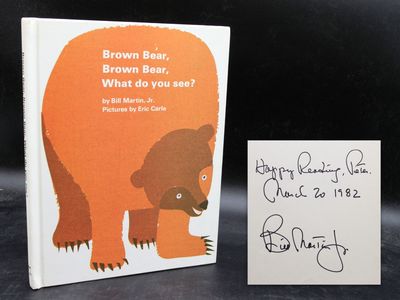 Brown Bear,
Brown Bear,
What do you see?
by Bill Martin, Jr.
Pictures by Eric Carle
Happy Reading, Pete.
March 20 1982
Bill Martin Jr